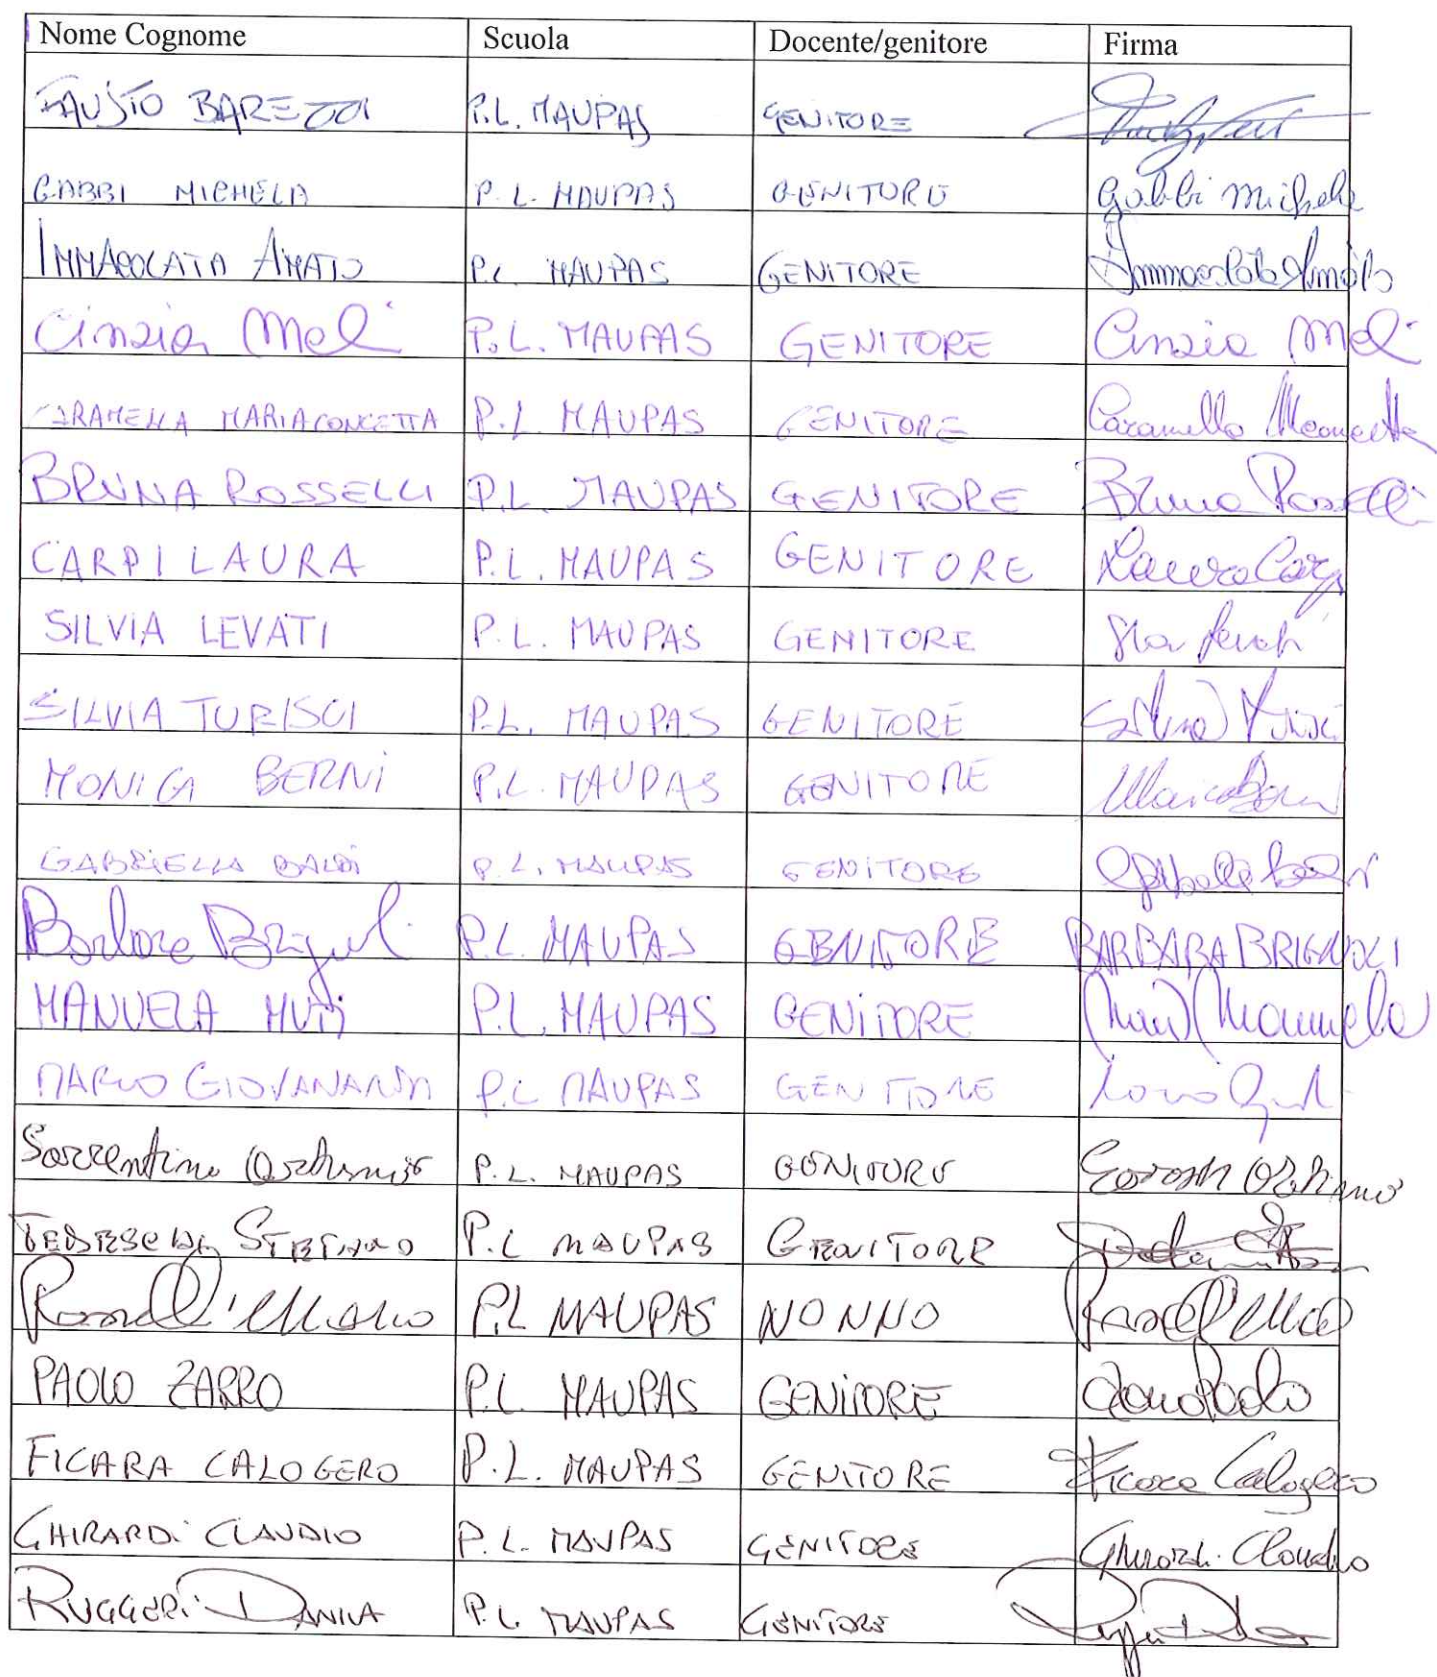 Nome Cognome Scuola Docente/genitore Firma
FAUSTO BAREZZI P.L. MAUPAS GENITORE
GABBI MICHELA P.L. MAUPAS GENITORE Gabbi Michela
IMMACOLATA AMATO P.L. MAUPAS GENITORE Immacolata Amato
Cinzia Meli P.L. MAUPAS GENITORE Cinzia Meli
CARAMELLA MARIACONCETTA P.L. MAUPAS GENITORE Caramella
BRUNA ROSSELLI P.L. MAUPAS GENITORE Bruna Rosselli
CARPI LAURA P.L. MAUPAS GENITORE Laura Carpi
SILVIA LEVATI P.L. MAUPAS GENITORE
SILVIA TURISCI P.L. MAUPAS GENITORE Silvia Turisci
MONICA BERNI P.L. MAUPAS GENITORE
GABRIELLA BALDI P.L. MAUPAS GENITORE
P.L. MAUPAS GENITORE BARBARA BRIGNOLI
MANUELA MUTI P.L. MAUPAS GENITORE Manuela
MARCO P.L MAUPAS GENITORE
Sorrentino P.L. MAUPAS GENITORE
P.L MAUPAS GENITORE
P.L MAUPAS NONNO
PAOLO ZARRO P.L. MAUPAS GENITORE Zarro Paolo
FICARA CALOGERO P.L. MAUPAS GENITORE Ficara Calogero
GHIRARDI CLAUDIO P.L. MAUPAS GENITORE Ghirardi Claudio
RUGGERI DANILA P.L. MAUPAS GENITORE